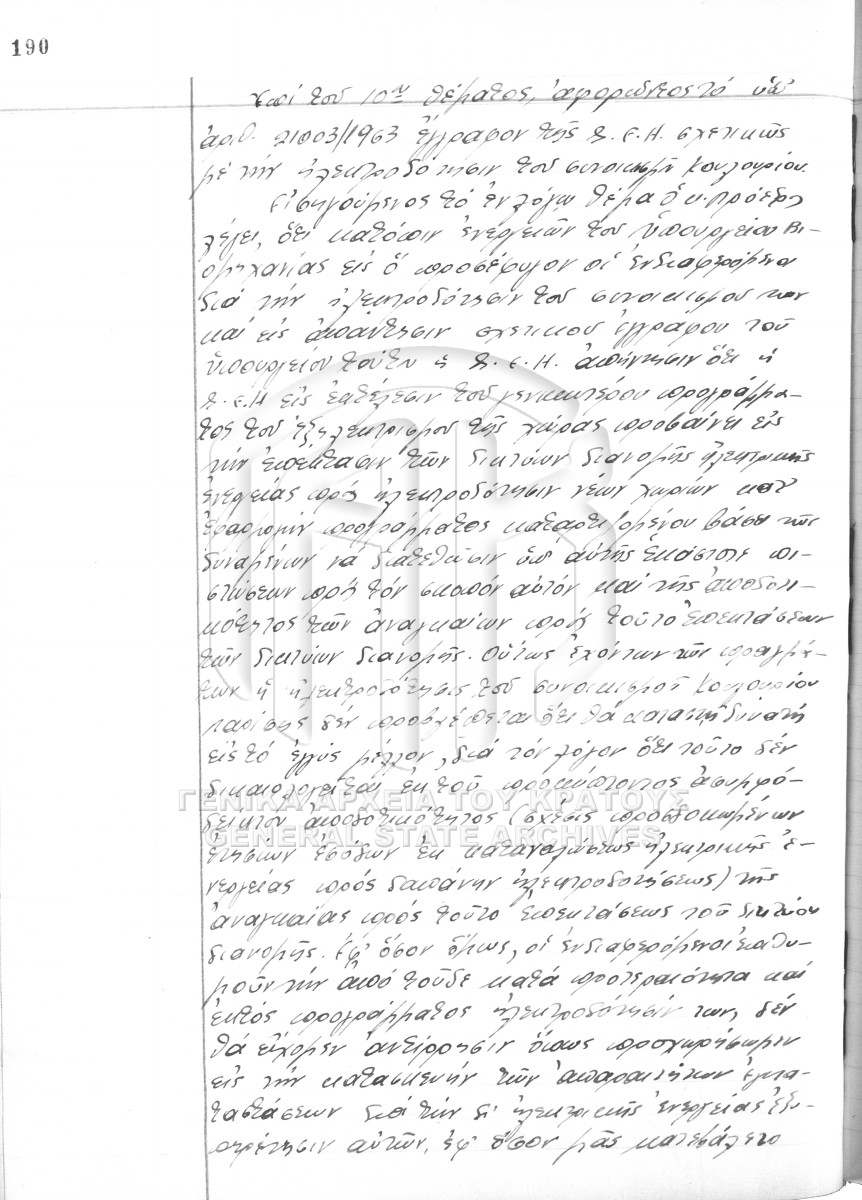 190
Επί του 10ου θέματος, αφορώντος τό υπ'
αριθ. 21003/1963 έγγραφον της Δ.Ε.Η. σχετικώς
μέ τήν ηλεκτροδότησιν του συνοικισμού Κουλουρίου.
Εισηγούμενος τό εν λόγω θέμα ο κ. Πρόεδρος
λέγει, ότι κατόπιν ενεργειών του Υπουργείου Βι-
ομηχανίας εις ό προσέφυγον οι ενδιαφερόμενοι
διά τήν ηλεκτροδότησιν του συνοικισμού των
καί εις απάντησιν σχετικού εγγράφου του
Υπουργείου τούτου η Δ.Ε.Η. απήντησεν ότι η
Δ.Ε.Η εις εκτέλεσιν του γενικωτέρου προγράμμα-
τος του εξηλεκτρισμού της χώρας προβαίνει εις
τήν επέκτασιν των δικτύων διανομής ηλεκτρικής
ενεργείας πρός ηλεκτροδότησιν νέων χωρίων κατ'
εφαρμογήν προγράμματος καταρτιζομένου βάσει των
δυναμένων νά διατεθώσιν υπ' αυτής εκάστοτε πι-
στώσεων πρός τόν σκοπόν αυτόν καί της αποδοτι-
κότητος των αναγκαίων πρός τούτο επεκτάσεων
των δικτύων διανομής. Ούτως εχόντων των πραγμά-
των η ηλεκτροδότησις του συνοικισμού Κουλουρίου
Λαρίσης δέν προβλέπεται ότι θά καταστή δυνατή
εις τό εγγύς μέλλον, διά τόν λόγον ότι τούτο δέν
δικαιολογείται εκ του προκύπτοντος ασυμφό-
ρου δείκτου αποδοτικότητος (σχέσις προσδοκωμένων
ετησίων εσόδων εκ καταναλώσεως ηλεκτρικής ε-
νεργείας πρός δαπάνην ηλεκτροδοτήσεως) της
αναγκαίας πρός τούτο επεκτάσεως του δικτύου
διανομής. Εφ' όσον όμως, οι ενδιαφερόμενοι επιθυ-
μούν τήν από τούδε κατά προτεραιότητα καί
εκτός προγράμματος ηλεκτροδότησίν των, δέν
θά είχομεν αντίρρησιν όπως προχωρήσωμεν
εις τήν κατασκευήν των απαραιτήτων εγκα-
ταστάσεων διά τήν δι' ηλεκτρικής ενεργείας εξυ-
πηρέτησιν αυτών, εφ' όσον μας κατεβάλετο
ΓΕΝΙΚΑ ΑΡΧΕΙΑ ΤΟΥ ΚΡΑΤΟΥΣ
GENERAL STATE ARCHIVES